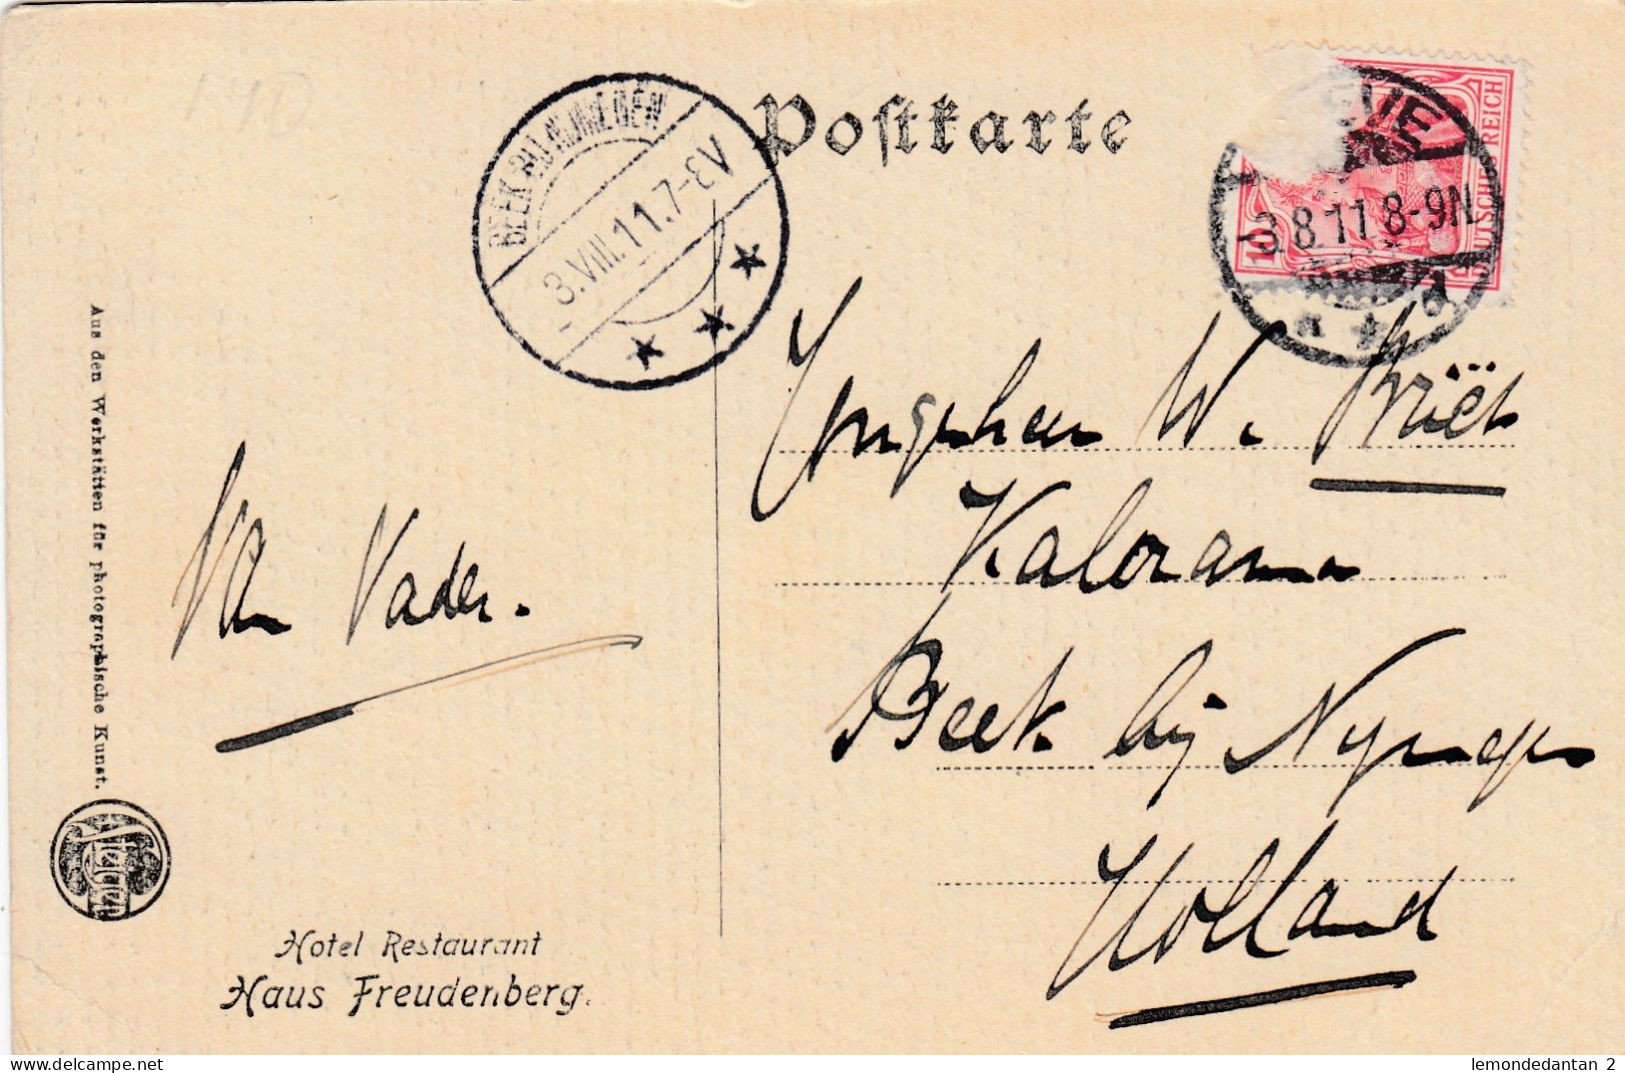 Postkarte
BEEK BIJ NIJMEGEN
3.VIII.11.7-8V
DEUTSCHES REICH
10
-3.8.11.8-9N.
Jongeheer W. Briët
Kalorama
Beek bij Nymegen
Holland
Van Vader.
Aus den Werkstätten für photographische Kunst.
Hotel Restaurant
Haus Freudenberg.
lemondedantan 2